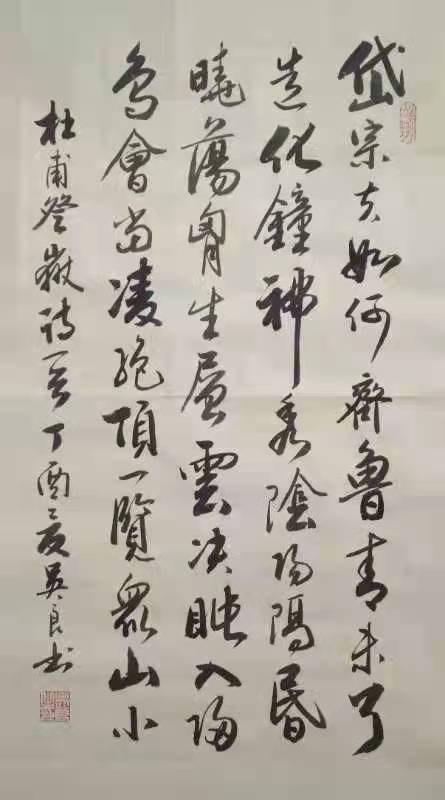 岱宗夫如何齊魯青未了
造化鐘神秀陰陽隔昏
曉蕩胷生層雲决眦入歸
鳥會當凌絕頂一覽眾山小
杜甫登嶽詩一首丁酉之夏吳良书